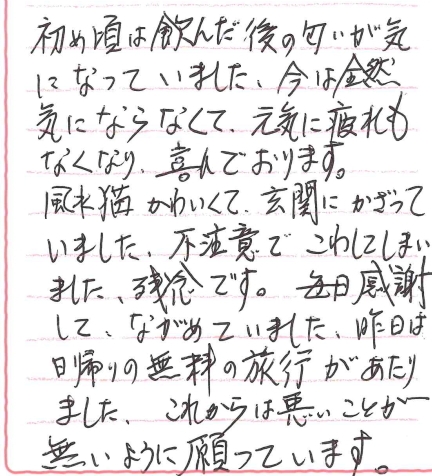 初め頃は飲んだ後の匂いが気
になっていました、今は全然
気にならなくて、元気に疲れも
なくなり、喜んでおります。
風水猫かわいくて、玄関にかざって
いました、不注意でこわしてしまい
ました、残念です。毎日感謝
して、ながめていました、昨日は
日帰りの無料の旅行があたり
ました、これからは悪いことが
無いように願っています。